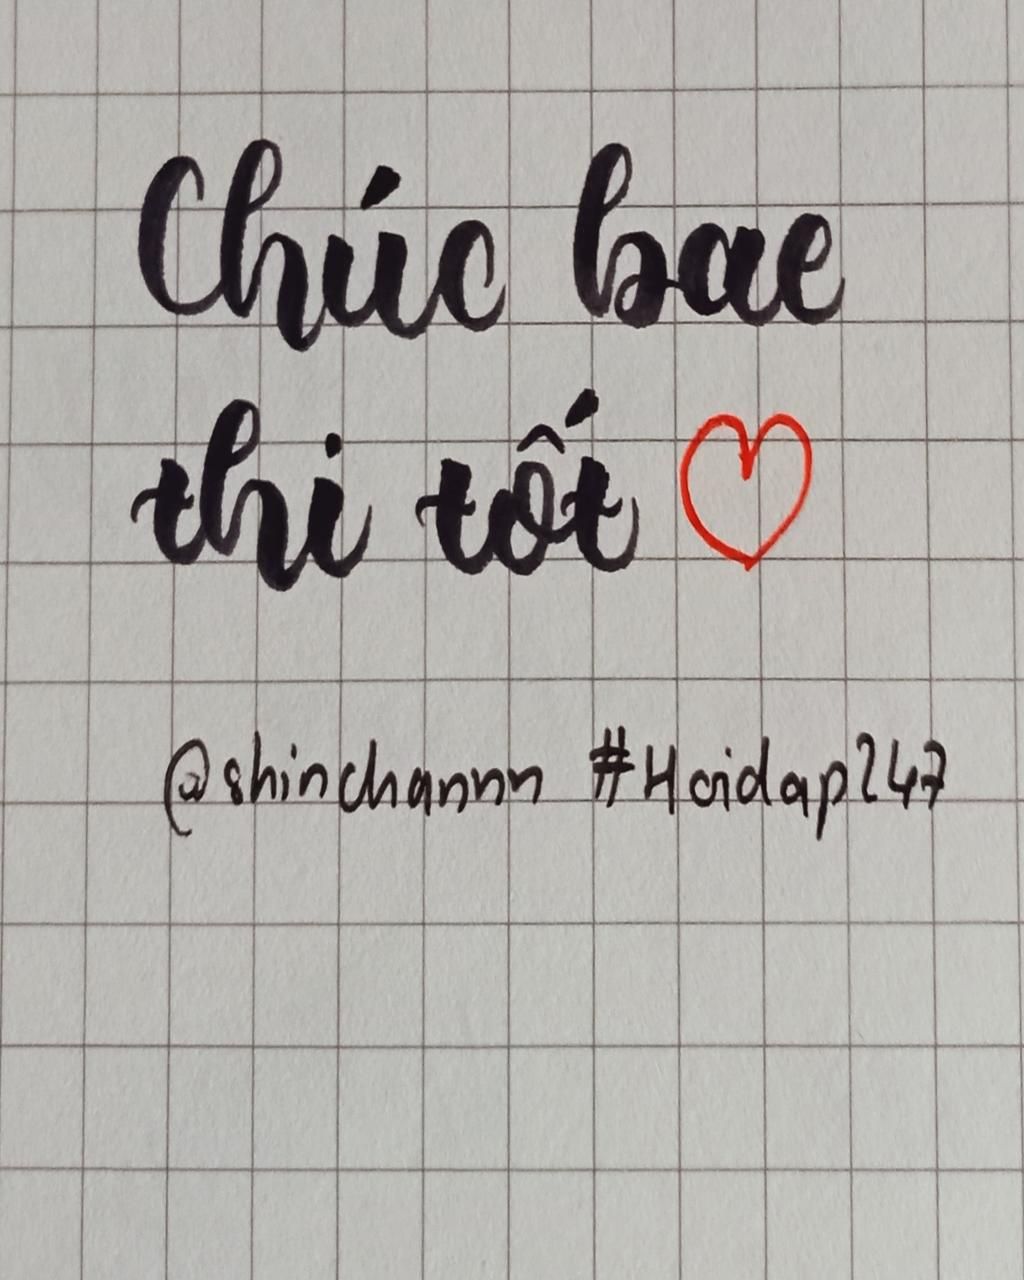 Chúc bae
thi tốt
@shinchannn #Hoidap247